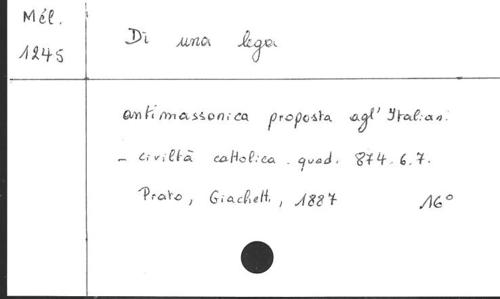 Mél.
1245
Di una lega
antimassonica proposta agl' Italiani
- civiltà cattolica. quad. 874.6.7.
Prato, Giachetti, 1887 16°